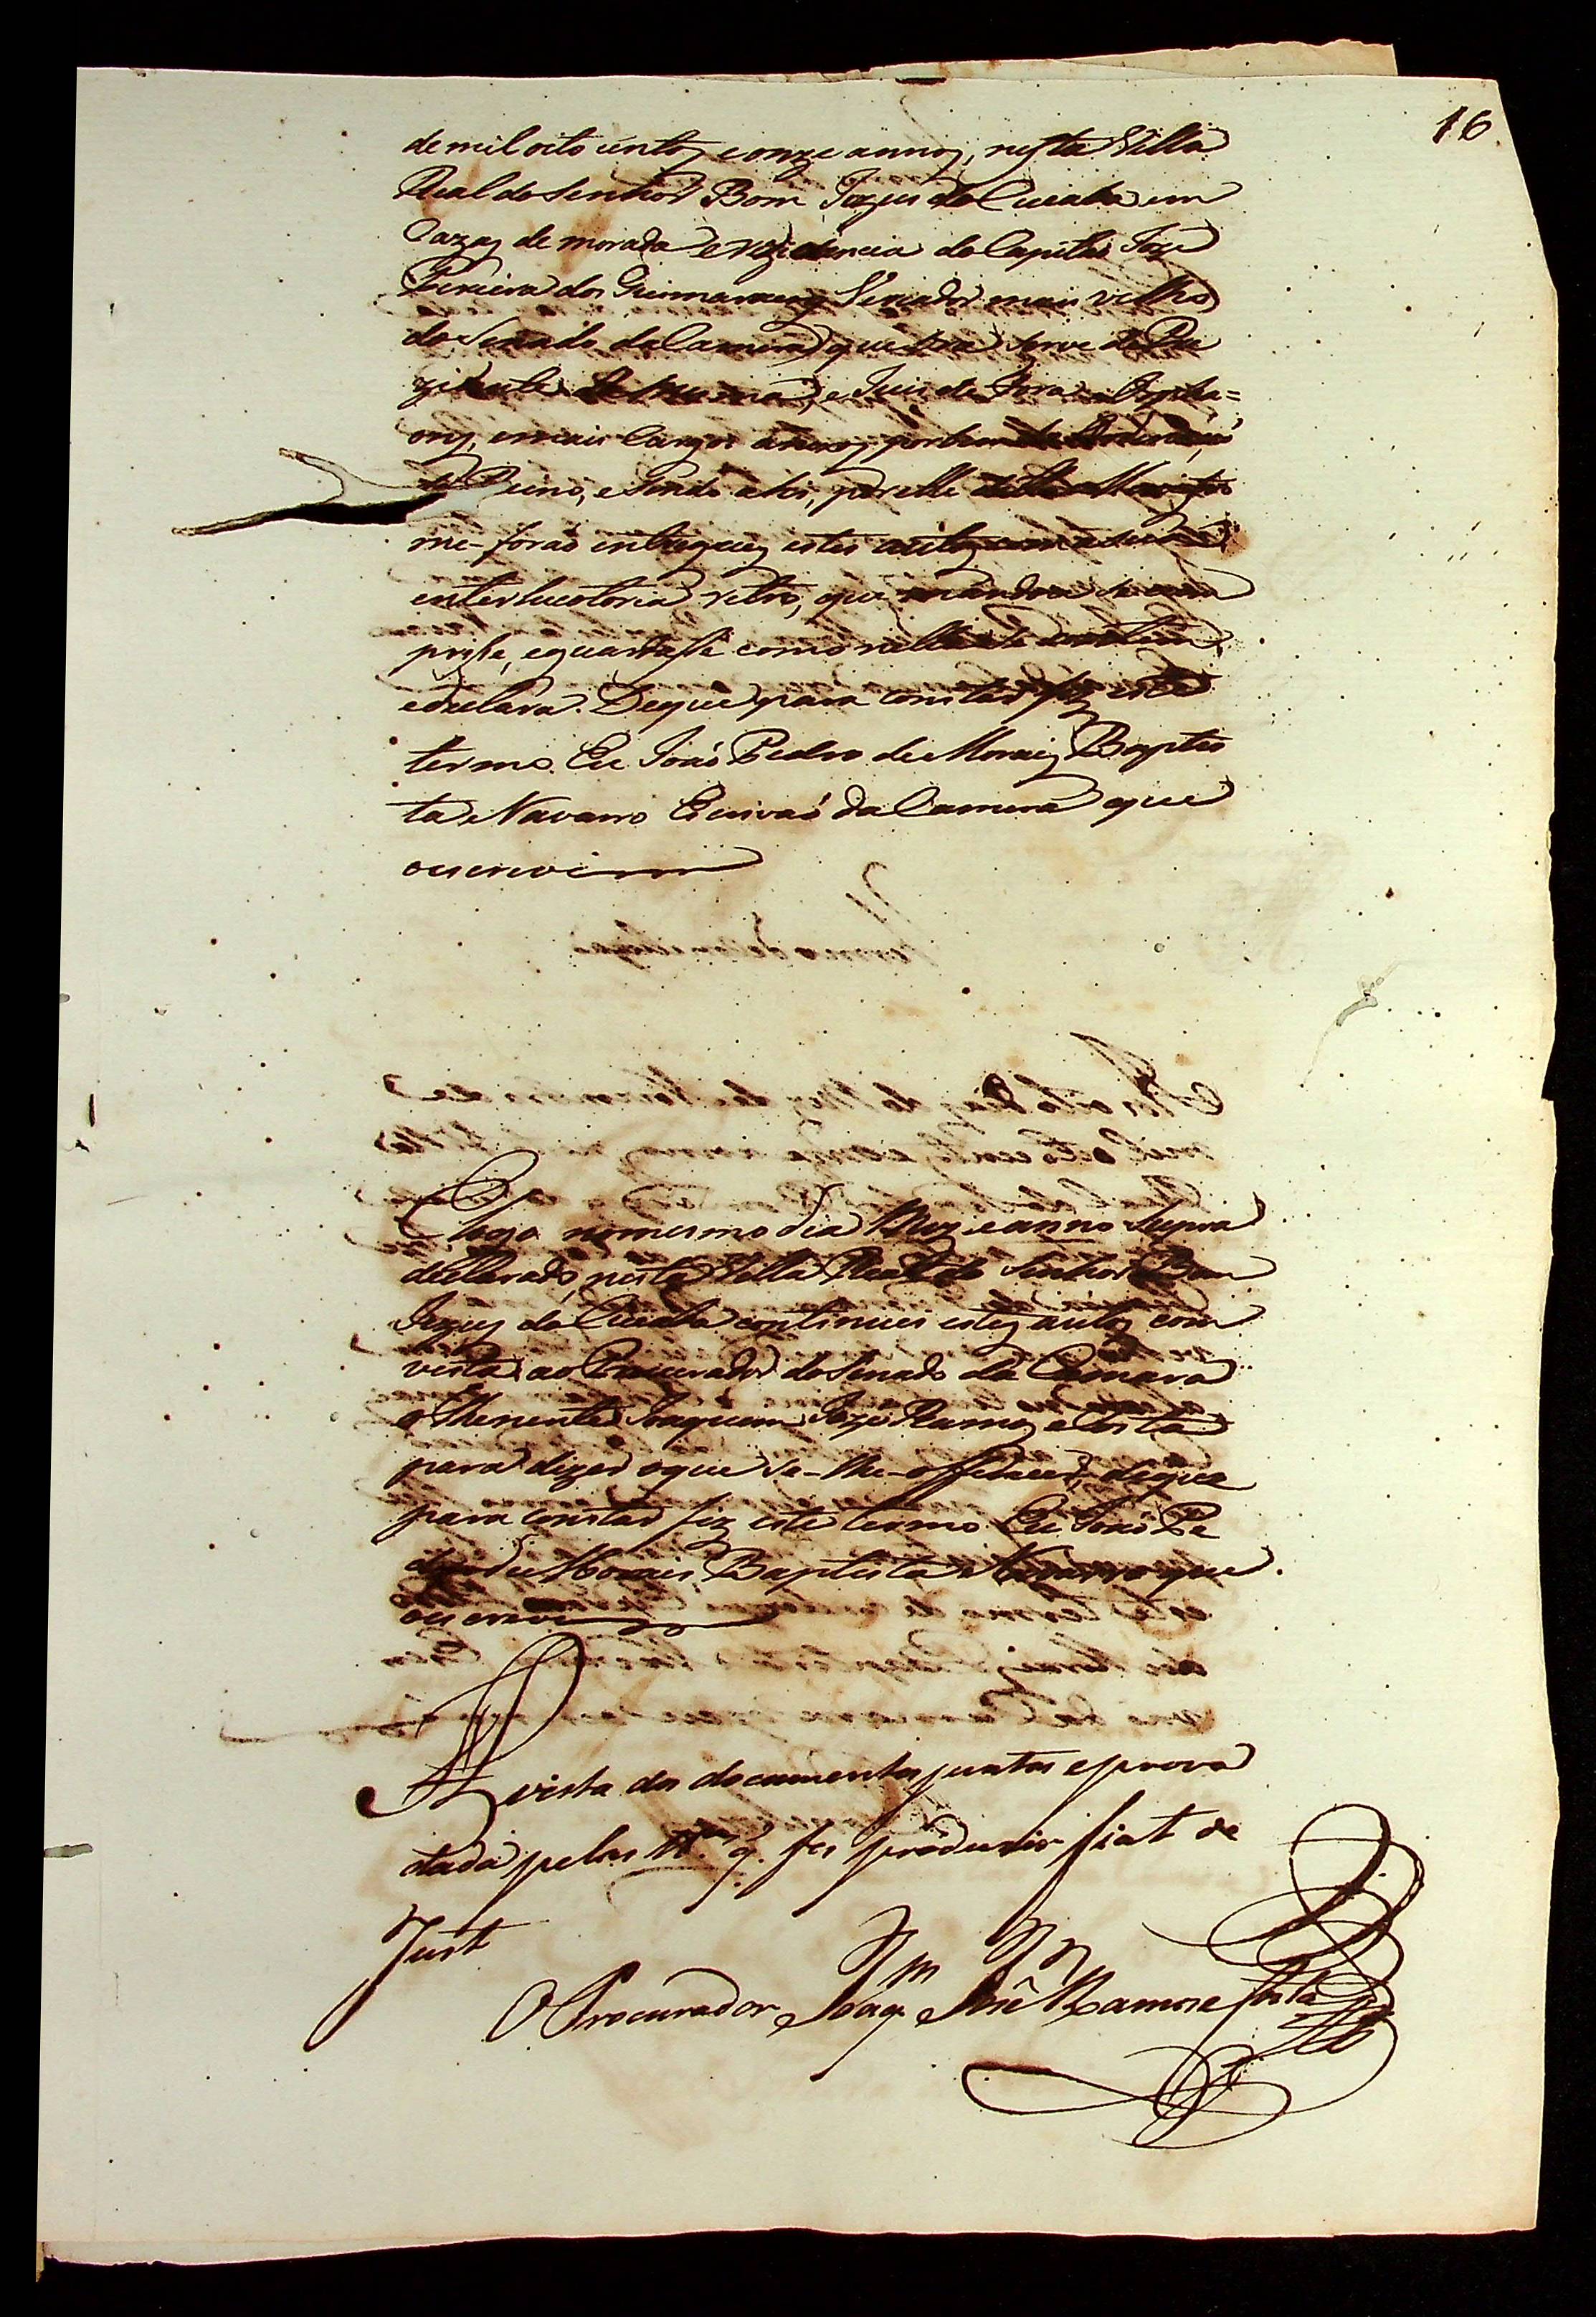 16
de mil oito centos e onze annos, nesta Villa
Real do Senhor Bom Jezus do Cuiaba em
Cazas de morada e rezidencia do Capitão Joze
Pereira dos Guimaraens Veriador mais velho
do Senado da Camera que ora serve de Pre
zidente da mesma, e Juis de Fora e Orpha=
ons, e mais Cargos anexos, por bem da Ordenação
do Reino, e sendo ahi, por elle
me-forão entregues estes autos com a sua
enterlucotoria retro, que mandou se cum
prisse, e guardasse como nella se contém,
e declara. De que para constar fiz este
termo. Eu João Pedro de Morais Baptis
ta Navarro Escrivão da Camera que
o escrevi
E logo no mesmo dia Mez e anno supra
declarado, nesta Villa Real do Senhor Bom
Jezus do Cuiaba continuei estes autos com
vista ao Procurador do Senado da Camara
o Thenente Joaquim Joze Ramos e Costa
para dizer o que se-lhe-offerecer, de que
para constar fiz este termo. Eu João Pe
dro de Morais Baptista Navarro que
o escrevi
A vista dos documentos juntos e prova
dada pelas tt.as q. fes produzir fiat de
Just
O Procurador Joaq.m José Ramos e Costa